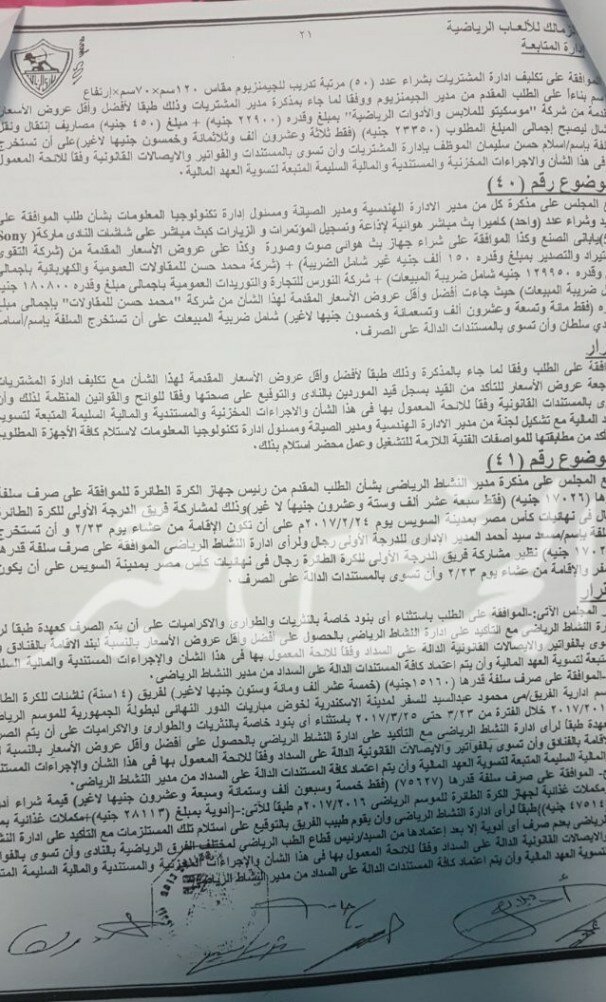 زمالك للألعاب الرياضية
ادارة المتابعة
٢١
الموافقة على تكليف ادارة المشتريات بشراء عدد (٥٠) مرتبة تدريب للجيمنزيوم مقاس ١٢٠سم×٧٠سم×إرتفاع
سم بناءاً على الطلب المقدم من مدير الجيمنزيوم ووفقا لما جاء بمذكرة مدير المشتريات وذلك طبقا لأفضل وأقل عروض الأسعار
دمة من شركة "موسكيتو للملابس والأدوات الرياضية" بمبلغ وقدره (٢٢٩٠٠ جنيه) + مبلغ (٤٥٠ جنيه) مصاريف إنتقال ونقل
ال ليصبح إجمالى المبلغ المطلوب (٢٣٣٥٠ جنيه) (فقط ثلاثة وعشرون ألف وثلاثمائة وخمسون جنيها لاغير) على أن تستخرج
لفة بإسم/اسلام حسن سليمان الموظف بإدارة المشتريات وأن تسوى بالمستندات والفواتير والايصالات القانونية وفقا للائحة المعمول
فى هذا الشأن والاجراءات المخزنية والمستندية والمالية السليمة المتبعة لتسوية العهد المالية.
وضوع رقم (٤٠)
ع المجلس على مذكرة كل من مدير الادارة الهندسية ومدير الصيانة ومسئول إدارة تكنولوجيا المعلومات بشأن طلب الموافقة على
يد وشراء عدد (واحد) كاميرا بث مباشر هوائية لإذاعة وتسجيل المؤتمرات و الزيارات كبث مباشر على شاشات النادى ماركة( Sony
)يابانى الصنع وكذا الموافقة على شراء جهاز بث هوائى صوت وصورة وكذا على عروض الأسعار المقدمة من (شركة التقوى
تيراد والتصدير بمبلغ وقدره ١٥٠ ألف جنيه غير شامل الضريبة) + (شركة محمد حسن للمقاولات العمومية والكهربائية بإجمالى
وقدره ١٢٩٩٥٠ جنيه شامل ضريبة المبيعات) + شركة النورس للتجارة والتوريدات العمومية بإجمالى مبلغ وقدره ١٨٠٨٠٠ جنيه
ل ضريبة المبيعات) حيث جاءت أفضل وأقل عروض الأسعار المقدمة لهذا الشأن من شركة "محمد حسن للمقاولات" بإجمالى مبلغ
ره (فقط مائة وتسعة وعشرون ألف وتسعمائة وخمسون جنيها لاغير) شامل ضريبة المبيعات على أن تستخرج السلفة بإسم/أسامة
دى سلطان وأن تسوى بالمستندات الدالة على الصرف.
رار
افقة على الطلب وفقا لما جاء بالمذكرة وذلك طبقاً لأفضل وأقل عروض الأسعار المقدمة لهذا الشأن مع تكليف إدارة المشتريات
جعة عروض الأسعار للتأكد من القيد بسجل قيد الموردين بالنادى والتوقيع على صحتها وفقا للوائح والقوانين المنظمة لذلك وأن
ى بالمستندات القانونية وفقاً للائحة المعمول بها فى هذا الشأن والاجراءات المخزنية والمستندية والمالية السليمة المتبعة لتسوية
د المالية مع تشكيل لجنة من مدير الادارة الهندسية ومدير الصيانة ومسئول إدارة تكنولوجيا المعلومات لاستلام كافة الأجهزة المطلوبة
أكد من مطابقتها للمواصفات الفنية اللازمة للتشغيل وعمل محضر استلام بذلك.
وضوع رقم (٤١)
ع المجلس على مذكرة مدير النشاط الرياضى بشأن الطلب المقدم من رئيس جهاز الكرة الطائرة للموافقة على صرف سلفة
ها (١٧٠٢٦ جنيه) (فقط سبعة عشر ألف وستة وعشرون جنيها لا غير)وذلك لمشاركة فريق الدرجة الأولى للكرة الطائرة
ال فى نهائيات كأس مصر بمدينة السويس يوم ٢٠١٧/٢/٢٤م على أن تكون الإقامة من عشاء يوم ٢/٢٣ و أن تستخرج
لفة بإسم/مسعد سيد أحمد المدير الإدارى للدرجة الأولى رجال ولرأى ادارة النشاط الرياضى الموافقة على صرف سلفة قدرها
١٧٠٢ جنيه) نظير مشاركة فريق الدرجة الأولى للكرة الطائرة رجال فى نهائيات كأس مصر بمدينة السويس على أن يكون
سفر والإقامة من عشاء يوم ٢/٢٣ وأن تسوى بالمستندات الدالة على الصرف.
رار
المجلس الآتى:-الموافقة على الطلب باستثناء أى بنود خاصة بالنثريات والطوارئ والاكراميات على أن يتم الصرف كعهدة طبقاً لر
رة النشاط الرياضى مع التأكيد على ادارة النشاط الرياضى بالحصول على أفضل وأقل عروض الأسعار بالنسبة لبند الاقامة بالفنادق و
وى بالفواتير والايصالات القانونية الدالة على السداد وفقاً للائحة المعمول بها فى هذا الشأن والإجراءات المستندية والمالية السل
تبعة لتسوية العهد المالية وأن يتم اعتماد كافة المستندات الدالة على السداد من مدير النشاط الرياضى.
-الموافقة على صرف سلفة قدرها (١٥١٦٠جنيه) (خمسة عشر ألف ومائة وستون جنيها لاغير) لفريق (١٤سنة) ناشئات للكرة الطا
سم ادارية الفريق/مى محمود عبدالسيد للسفر لمدينة الاسكندرية لخوض مباريات الدور النهائى لبطولة الجمهورية للموسم الرياض
٢٠١٧/٢٠١ خلال الفترة من ٣/٢٣ حتى ٢٠١٧/٣/٢٥ باستثناء أى بنود خاصة بالنثريات والطوارئ والاكراميات على أن يتم الصر
عهدة طبقا لرأى ادارة النشاط الرياضى مع التأكيد على ادارة النشاط الرياضى بالحصول على أفضل وأقل عروض الأسعار بالنسبة ل
لإقامة بالفنادق وأن تسوى بالفواتير والايصالات القانونية الدالة على السداد وفقاً للائحة المعمول بها فى هذا الشأن والإجراءات المستند
والمالية السليمة المتبعة لتسوية العهد المالية وأن يتم اعتماد كافة المستندات الدالة على السداد من مدير النشاط الرياضى.
ج- الموافقة على صرف سلفة قدرها (٧٥٦٢٧) (فقط خمسة وسبعون ألف وستمائة وسبعة وعشرون جنيها لاغير) قيمة شراء أدو
مكملات غذائية لجهاز الكرة الطائرة للموسم الرياضى ٢٠١٧/٢٠١٦م طبقا للآتى:-(أدوية بمبلغ (٢٨١١٣ جنيه)+مكملات غذائية بم
٤٧٥١٤ جنيه))طبقا لرأى ادارة النشاط الرياضى وأن يقوم طبيب الفريق بالتوقيع على إستلام تلك المستلزمات مع التأكيد على ادارة النش
لرياضى بعدم صرف أى أدوية إلا بعد إعتمادها من السيد/رئيس قطاع الطب الرياضى لمختلف الفرق الرياضية بالنادى وأن تسوى بالفوات
الايصالات القانونية الدالة على السداد وفقاً للائحة المعمول بها فى هذا الشأن والإجراءات المخزنية والمستندية والمالية السليمة المتب
تسوية العهد المالية وأن يتم اعتماد كافة المستندات الدالة على السداد من مدير النشاط الرياضى.